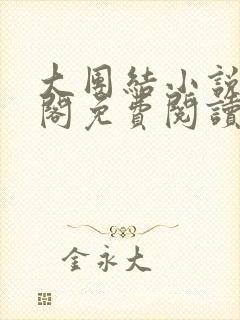 大團結小說
閣免費閱讀
金永大